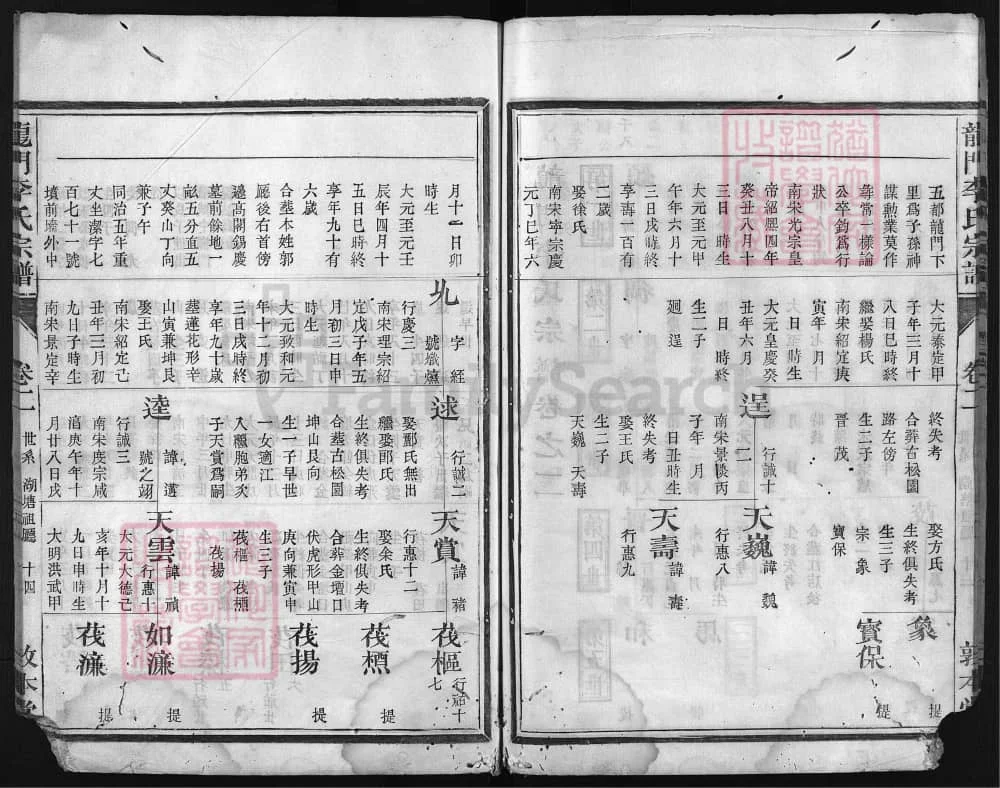 龍門李氏宗譜
卷二
敦本堂
五都龍門下
里爲子孫神
謀勲業莫作
尋常一樣論
公卒鈞爲行
狀
南宋光宗皇
帝紹熙四年
癸丑八月十
三日生
大元至元甲
午年六月十
三日戌時終
享壽一百有
二歲
娶徐氏
南宋寧宗慶
元丁巳年六
大元泰定甲
子年三月十
八日巳時終
繼娶楊氏
南宋紹定庚
寅年七月十
日時生
大元皇慶癸
丑年六月
日時終
生二子
迥 逞
終失考
合葬古松園
路左傍
生二子
晋 茂
逞
行誠十
二
南宋景陵丙
子年二月
日丑時生
終失考
娶王氏
生二子
天巍 天壽
娶方氏
生終俱失考
生三子
宗一 象
寶保
天巍
諱 巍
行惠八
天壽
諱 壽
行惠九
象
提
寶保
提
月十二日卯
時生
大元至元壬
辰年四月十
五日巳時終
享年九十有
六歲
合塟本姓郭
厩後右首傍
邉高開錫慶
墓前餘地一
畝五分直五
丈癸山丁向
兼子午
同治五年重
丈坐藻字七
百七十一號
墳前墻外中
字 經
號熾爐
行慶三
南宋理宗紹
定戊子年五
月初三日申
時生
大元致和元
年十二月初
三日戌時終
享年九十歲
塟蓮花形辛
山寅兼坤艮
娶王氏
南宋紹定己
丑年三月初
九日子時生
南宋景定辛
逑
行誠二
娶酈氏無出
繼娶郎氏
生終俱失考
合塟古松園
坤山艮向
生一子早世
一女適江
入繼胞弟次
子天賞爲嗣
逵
諱 邁
號之翊
行誠三
南宋度宗咸
淊庚午年十
月廿八日戌
天賞
諱 豬
行惠十二
娶余氏
生終俱失考
合葬金壇口
伏虎形甲山
庚向兼寅申
生三子
茷樞 茷櫄
茷揚
天雲
諱 禎
行惠十
大元大德己
亥年十月十
九日申時生
大明洪武甲
茷樞
行祜十
七
茷櫄
提
茷揚
提
如濂
提
茷濂
提
龍門李氏宗譜
卷二
世系
湖塘祖廳
十四
FamilySearch